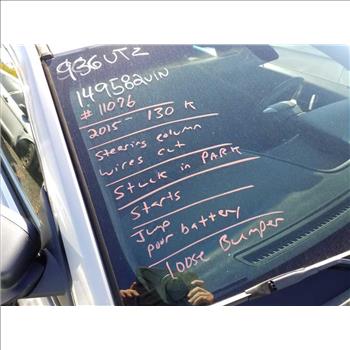 936 UTZ
149582 VIN
# 11076
2015 - 130 K
Steering column
wires cut
Stuck in PARK
Starts
Jump
poor battery
loose Bumper